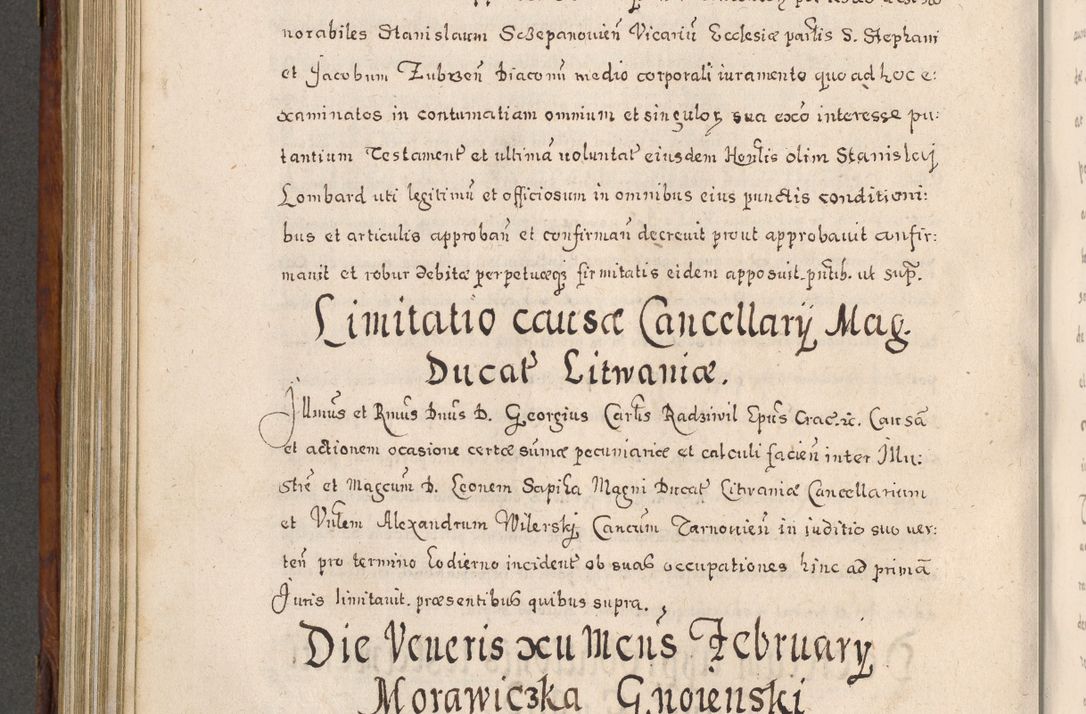 norabiles Stanislaum Sczepanouień Vicariū Ecclesiæ partis S. Stephani
et Jacobum Zubrzeń Diaconū medio corporali iuramento quo ad hoc e:
xaminatos in contumatiam omnium et singulor. sua exĉo interesse pu:
tantium Testament̃ et ultimā uoluntat̃ eiusdem Hontis olim Stanislai
Lombard uti legitimū et officiosum in omnibus eius punctis conditioni:
bus et articulis approbań et confirmań decreuit prout approbauit confir:
mauit et robur debitæ perpetuæq; firmitatis eidem apposuit. pntib. ut sup̃.
Limitatio causæ Cancellarij Mag.
Ducat̃ Litwaniæ.
Illmus et Rmus Dnus D. Georgius Cartis Radziwil Epus Crac. ꝛc. Causā
et actionem ocasione certæ sumæ pecuniariæ et calculi facień inter Illu:
strē et Magcum D. Leonem Sapiha Magni Ducat̃ Litvaniæ Cancellarium
et Vnlem Alexandrum Wilerskj Cancum Tarnouień in iuditio suo uer:
teń pro termino hodierno incident̃ ob suas occupationes hinc ad primā
Juris limitauit. præsentibus quibus supra.
Die Veneris xiu Mens Februarij
Morawiczka Gnoienski